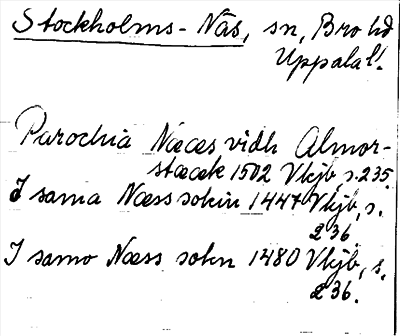 Stockholms-Näs, sn, Bro hd
Uppsala l.
Parochia Næces vidh Almor-
stæcek 1502 Vkjb, s. 235.
I sama Næss sokin 1447 Vkjb, s.
236
I samo Næss sokn 1480 Vkjb, s.
236.